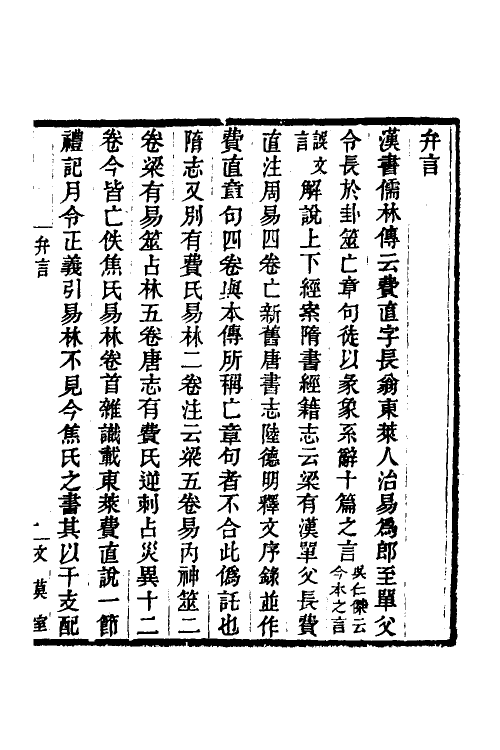 弁言
漢書儒林傳云費直字長翁東萊人治易爲郎至單父
令長於卦筮亡章句徒以彖象系辭十篇之言吳仁傑云今本之言
誤文言解說上下經案隋書經籍志云梁有漢單父長費
直注周易四卷亡新舊唐書志陸德明釋文序錄並作
費直章句四卷與本傳所稱亡章句者不合此僞託也
隋志又別有費氏易林二卷注云梁五卷易內神筮二
卷梁有易筮占林五卷唐志有費氏逆刺占災異十二
卷今皆亡佚焦氏易林卷首雜識載東萊費直說一節
禮記月令正義引易林不見今焦氏之書其以干支配
弁言
一
文莫室